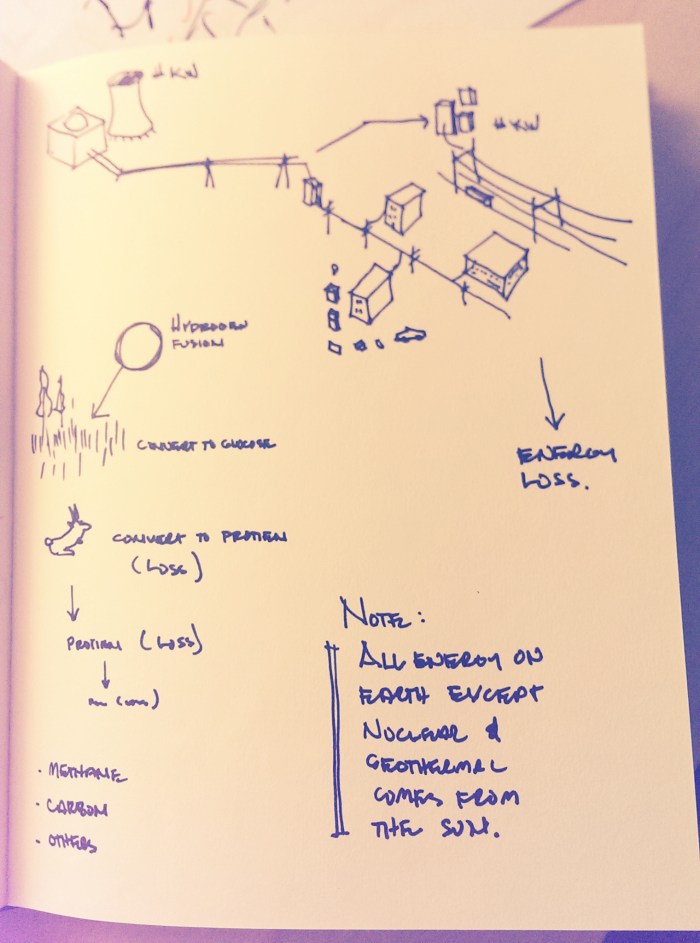 # KW
# KW
HYDROGEN
FUSION
CONVERT TO GLUCOSE
CONVERT TO PROTIEN
(LOSS)
PROTIEN (LOSS)
(LOSS)
· METHANE
· CARBON
· OTHERS
ENERGY
LOSS.
NOTE:
ALL ENERGY ON
EARTH EXCEPT
NUCLEAR &
GEOTHERMAL
COMES FROM
THE SUN.